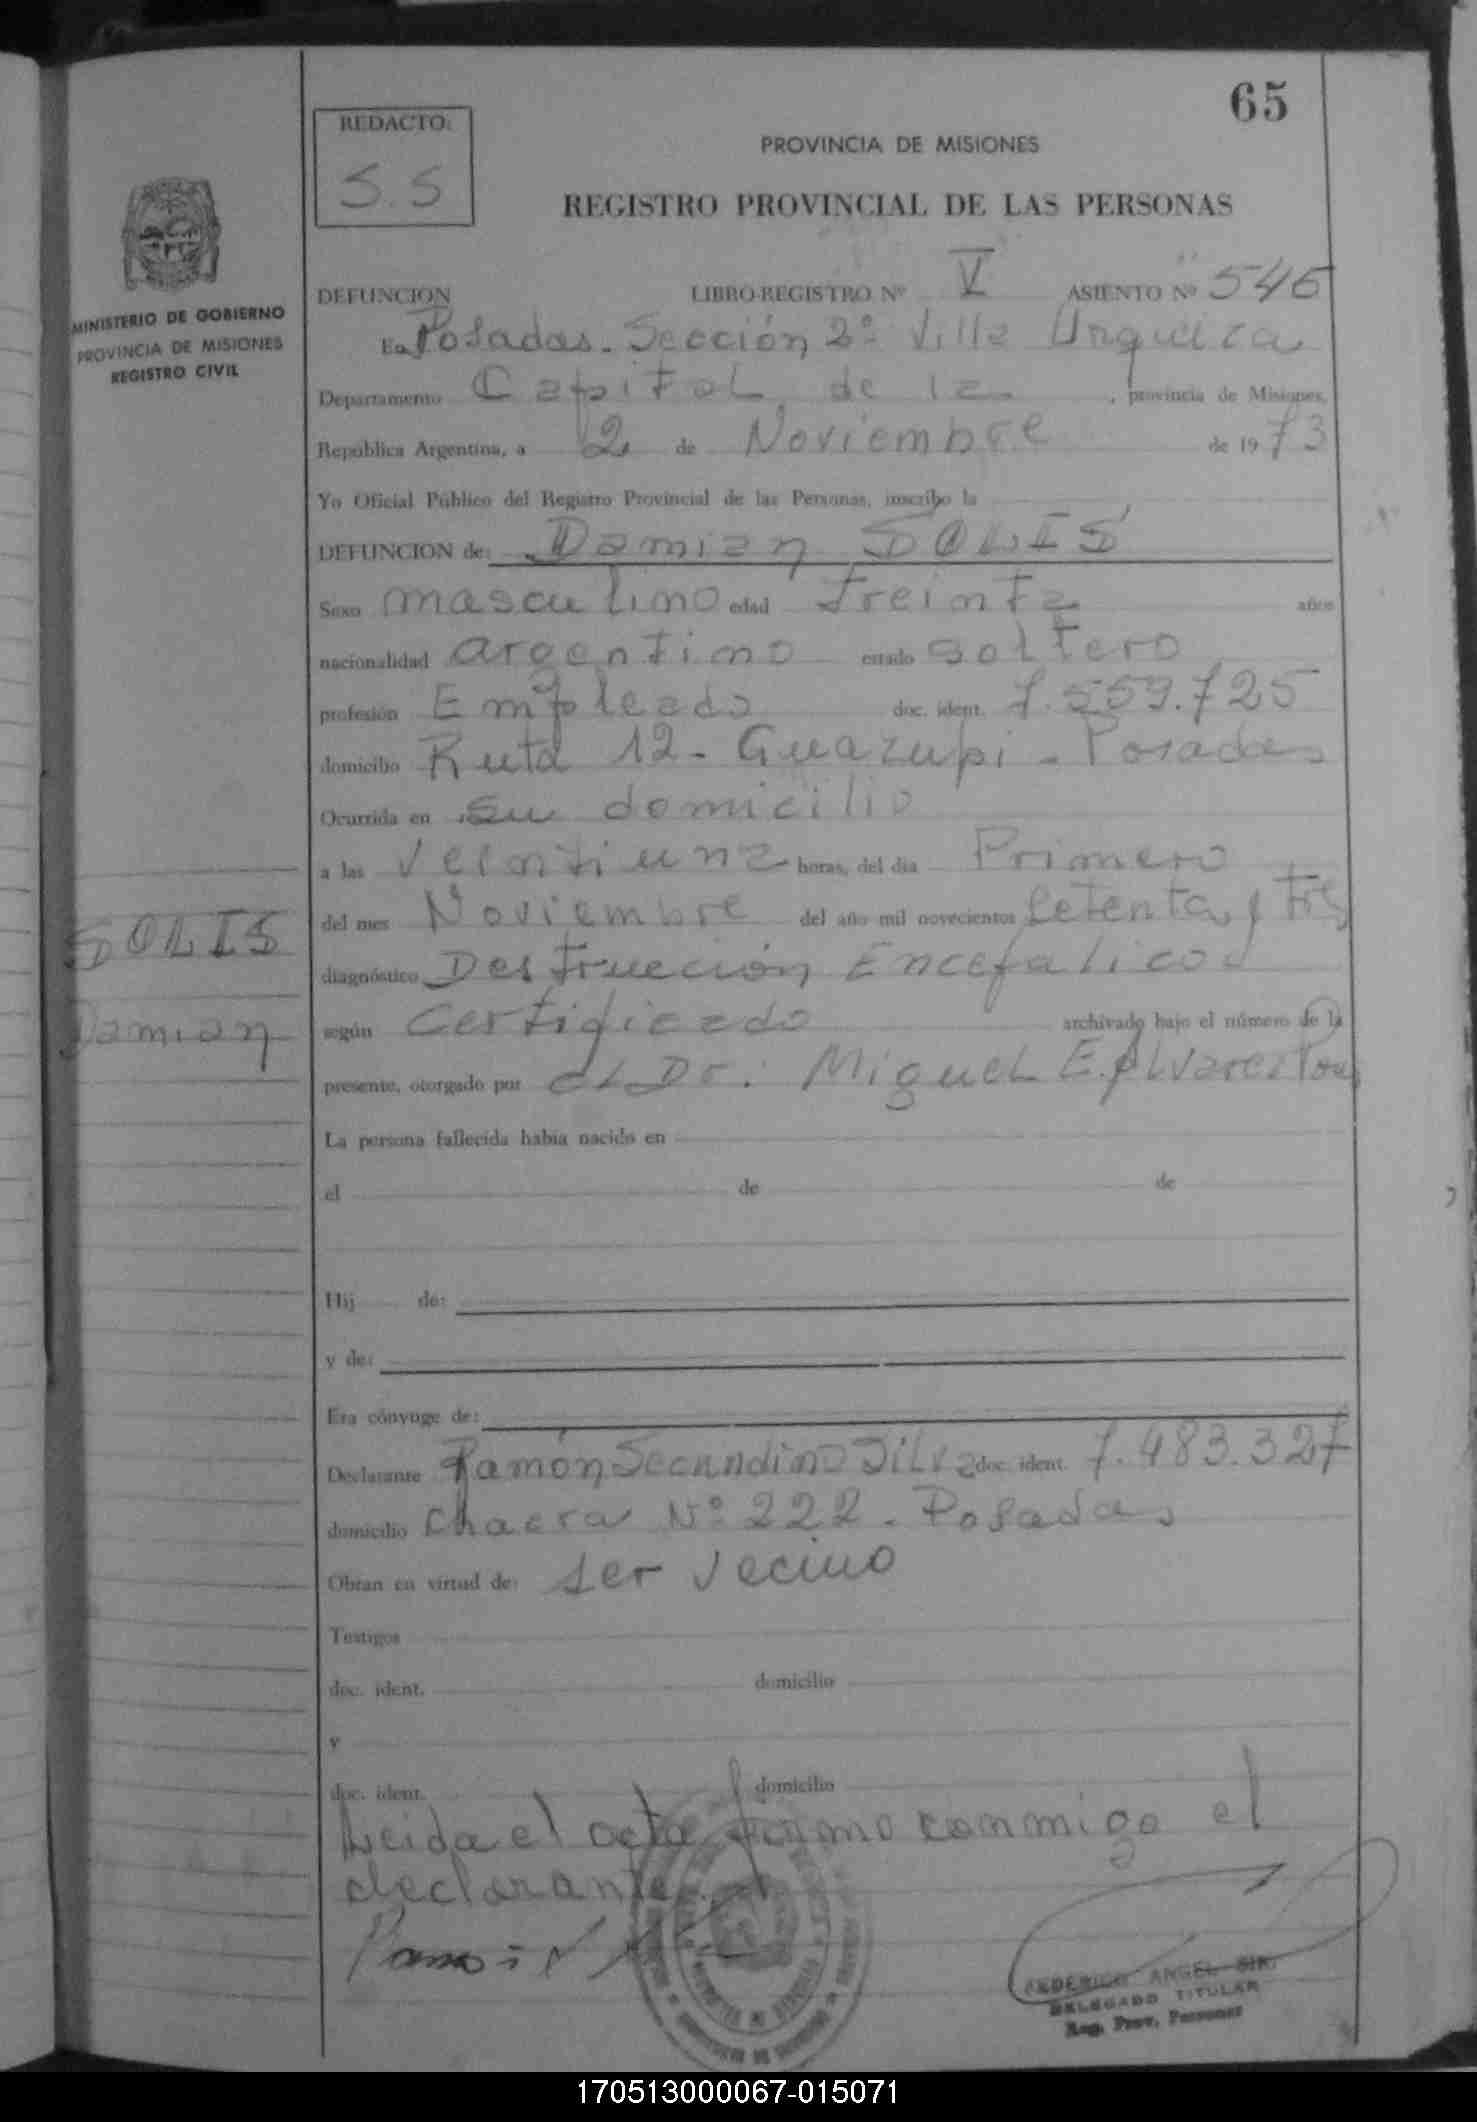 65
REDACTO:
S.S
PROVINCIA DE MISIONES
REGISTRO PROVINCIAL DE LAS PERSONAS
MINISTERIO DE GOBIERNO
PROVINCIA DE MISIONES
REGISTRO CIVIL
DEFUNCION LIBRO-REGISTRO Nº V ASIENTO Nº 546
En Posadas. Sección 2º Villa Urquiza
Departamento Capital de la , provincia de Misiones,
República Argentina, a 2 de Noviembre de 1973
Yo Oficial Público del Registro Provincial de las Personas, inscribo la
DEFUNCION de: Damian SOLIS
Sexo masculino edad treinta años
nacionalidad argentino estado soltero
profesión Empleado doc. ident. 7.559.725
domicilio Ruta 12 - Guazupi - Posadas
Ocurrida en su domicilio
a las Veintiuna horas, del día Primero
del mes Noviembre del año mil novecientos setenta y tres
diagnóstico Destrucción Encefalico
según Certificado archivado bajo el número de la
presente, otorgado por el Dr. Miguel E. Alvarez
La persona fallecida había nacido en
el de de
Hij de:
y de:
Era cónyuge de:
Declarante Ramón Secundino Silva doc. ident. 7.483.327
domicilio Chacra Nº 222 - Posadas
Obran en virtud de: ser vecino
Testigos
doc. ident. domicilio
y
doc. ident. domicilio
Leida el acta firmo conmigo el
declarante.
SOLIS
Damian
FEDERICO ANGEL
DELEGADO TITULAR
Reg. Prov. Personas
170513000067-015071